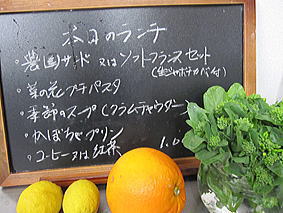 本日のランチ
・農園サンド 又は ソフトフランスセット
(生ジャガポテトパイ付)
・菜の花プチパスタ
・季節のスープ(クラムチャウダー)
・かぼちゃプリン
・コーヒー又は紅茶